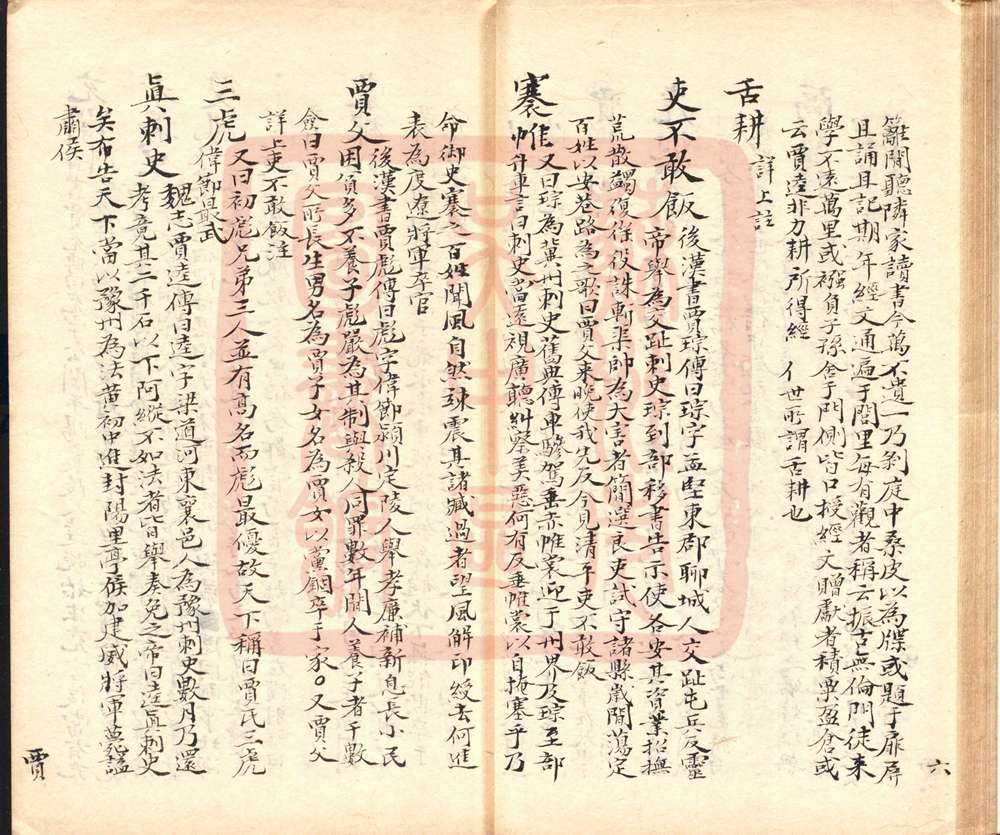 籬間聽隣家讀書今萬不遺一乃剝庭中桑皮以為牒或題于扉屏
且誦且記期年經文通遍于閭里每有觀者稱云振古無倫門徒来
學不遠萬里或襁負子孫舍于門側皆口授經文贈獻者積粟盈倉或
云賈逵非力耕所得經　世所謂舌耕也
舌耕　詳上註
吏不敢飯　後漢書賈琮傳曰琮字孟堅東郡聊城人交趾屯兵反靈
帝舉為交趾刺史琮到部移書告示使各安其資業招撫
荒散蠲復徭役誅斬渠帥為大害者簡選良吏試守諸縣歲間蕩定
百姓以安巷路為之歌曰賈父来晚使我先反今見清平吏不敢飯
褰帷　又曰琮為冀州刺史舊典傳車驂駕垂赤帷裳迎于州界及琮至部
升車言曰刺史當遠視廣聽糾察美惡何有反垂帷裳以自掩塞乎乃
命御史褰之百姓聞風自然竦震其諸臧過者望風解印綬去何進
表為度遼將軍卒官
賈父　後漢書賈彪傳曰彪字偉節潁川定陵人舉孝廉補新息長小民
困貧多不養子彪嚴為其制與殺人同罪數年間人養子者千數
僉曰賈父所長生男名為賈子女名為賈女以黨錮卒于家○又賈父
詳上吏不敢飯注
三虎　又曰初彪兄弟三人並有高名而彪最優故天下稱曰賈氏三虎
偉節最武
真刺史　魏志賈逵傳曰逵字梁道河東襄邑人為豫州刺史數月乃還
考竟其二千石以下阿縱不如法者皆舉奏免之帝曰逵真刺史
矣布告天下當以豫州為法黄初中進封陽里亭侯加建威將軍薨諡
肅侯
六
賈